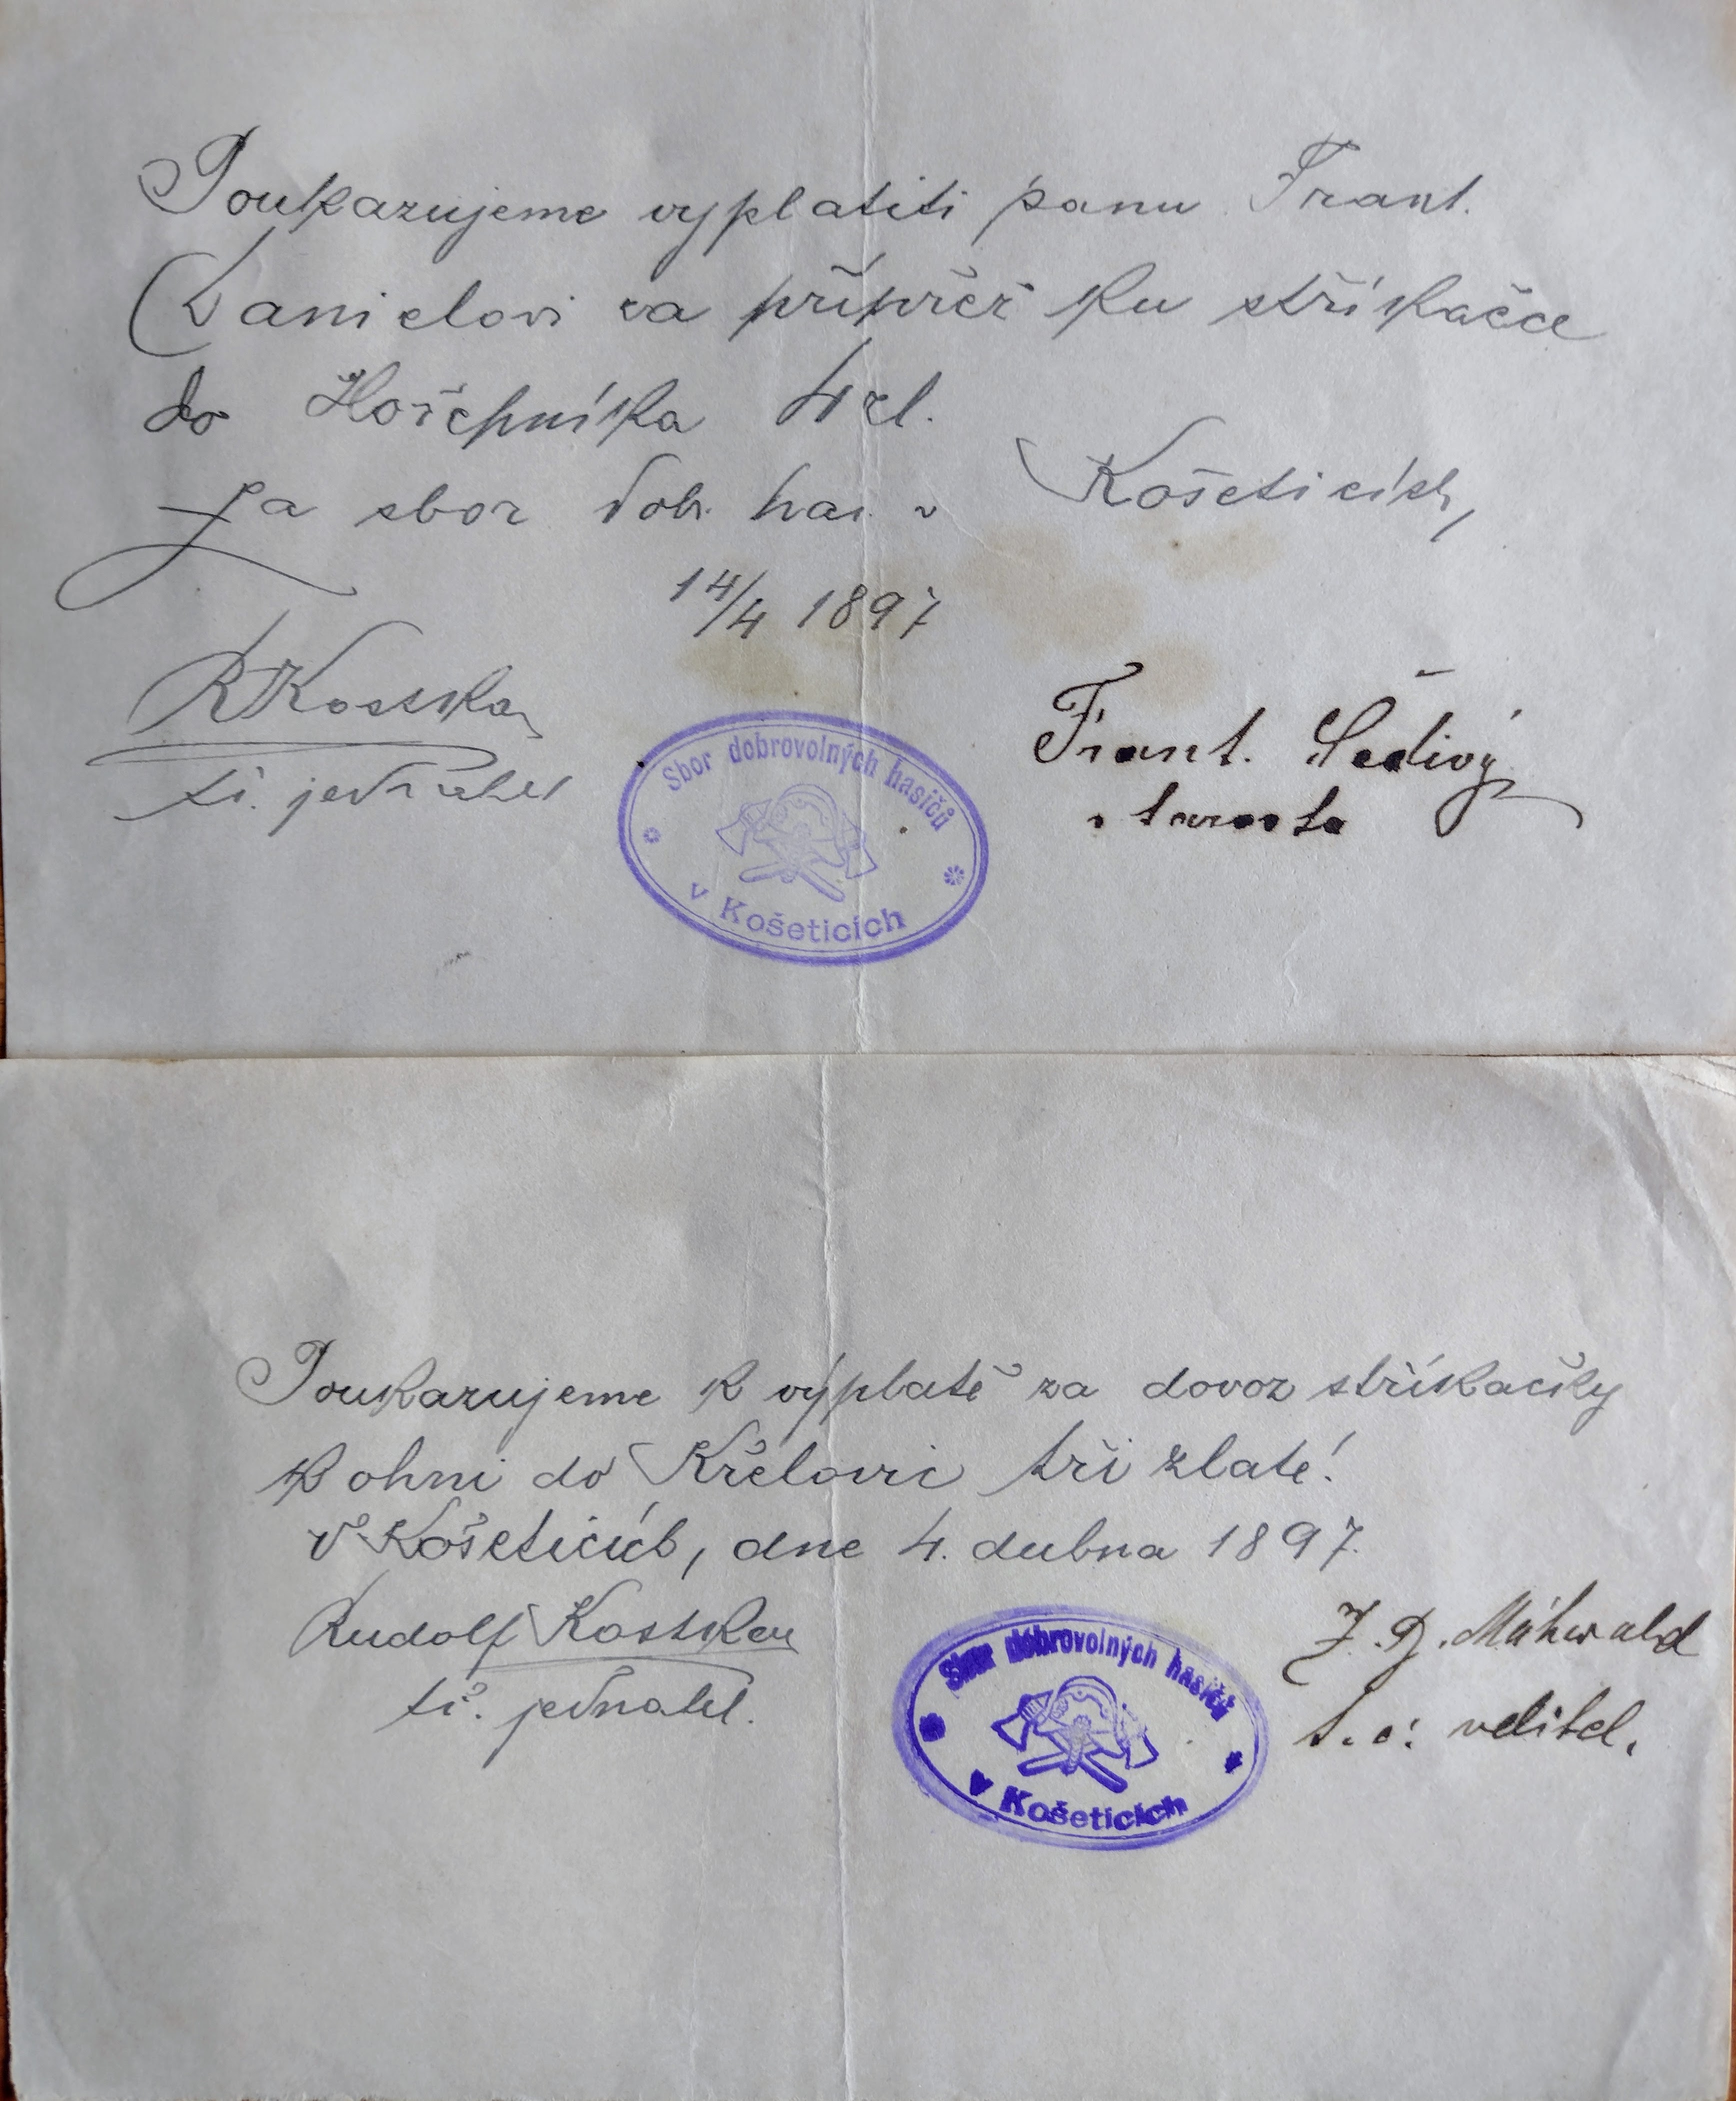 Poukazujeme vyplatiti panu Frant.
Danielovi za přípřež ku stříkačce
do Hořepníka 4 zl.
Za sbor dob. has. v Košeticích,
14/4 1897
RKostka
t.č. jednatel
Frant. Šedivý
starosta
Sbor dobrovolných hasičů
v Košeticích
Poukazujeme k výplatě za dovoz stříkačky
k ohni do Křelovic tři zlaté!
V Košeticích, dne 4. dubna 1897.
Rudolf Kostka
t.č. jednatel.
J. Máhwald
t.č. velitel.
Sbor dobrovolných hasičů
v Košeticích